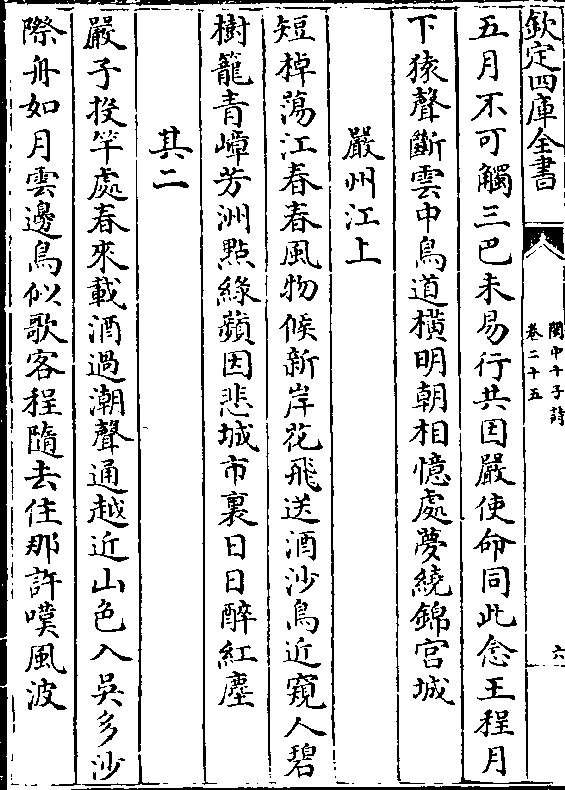 欽定四庫全書
閩中十子詩
卷二十五
六
五月不可觸三巴未易行共因嚴使命同此念王程月
下猿聲斷雲中鳥道橫明朝相憶處夢繞錦宫城
嚴州江上
短棹蕩江春春風物候新岸花飛送酒沙鳥近窺人碧
樹籠青嶂芳洲點綠蘋因悲城市裏日日醉紅塵
其二
嚴子投竿處春來載酒過潮聲通越近山色入吳多沙
際舟如月雲邊鳥似歌客程隨去住那許嘆風波